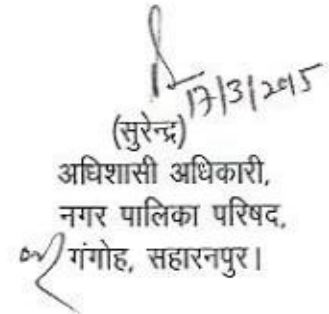 17/3/2015
(सुरेन्द्र)
अधिशासी अधिकारी,
नगर पालिका परिषद,
गंगोह, सहारनपुर।